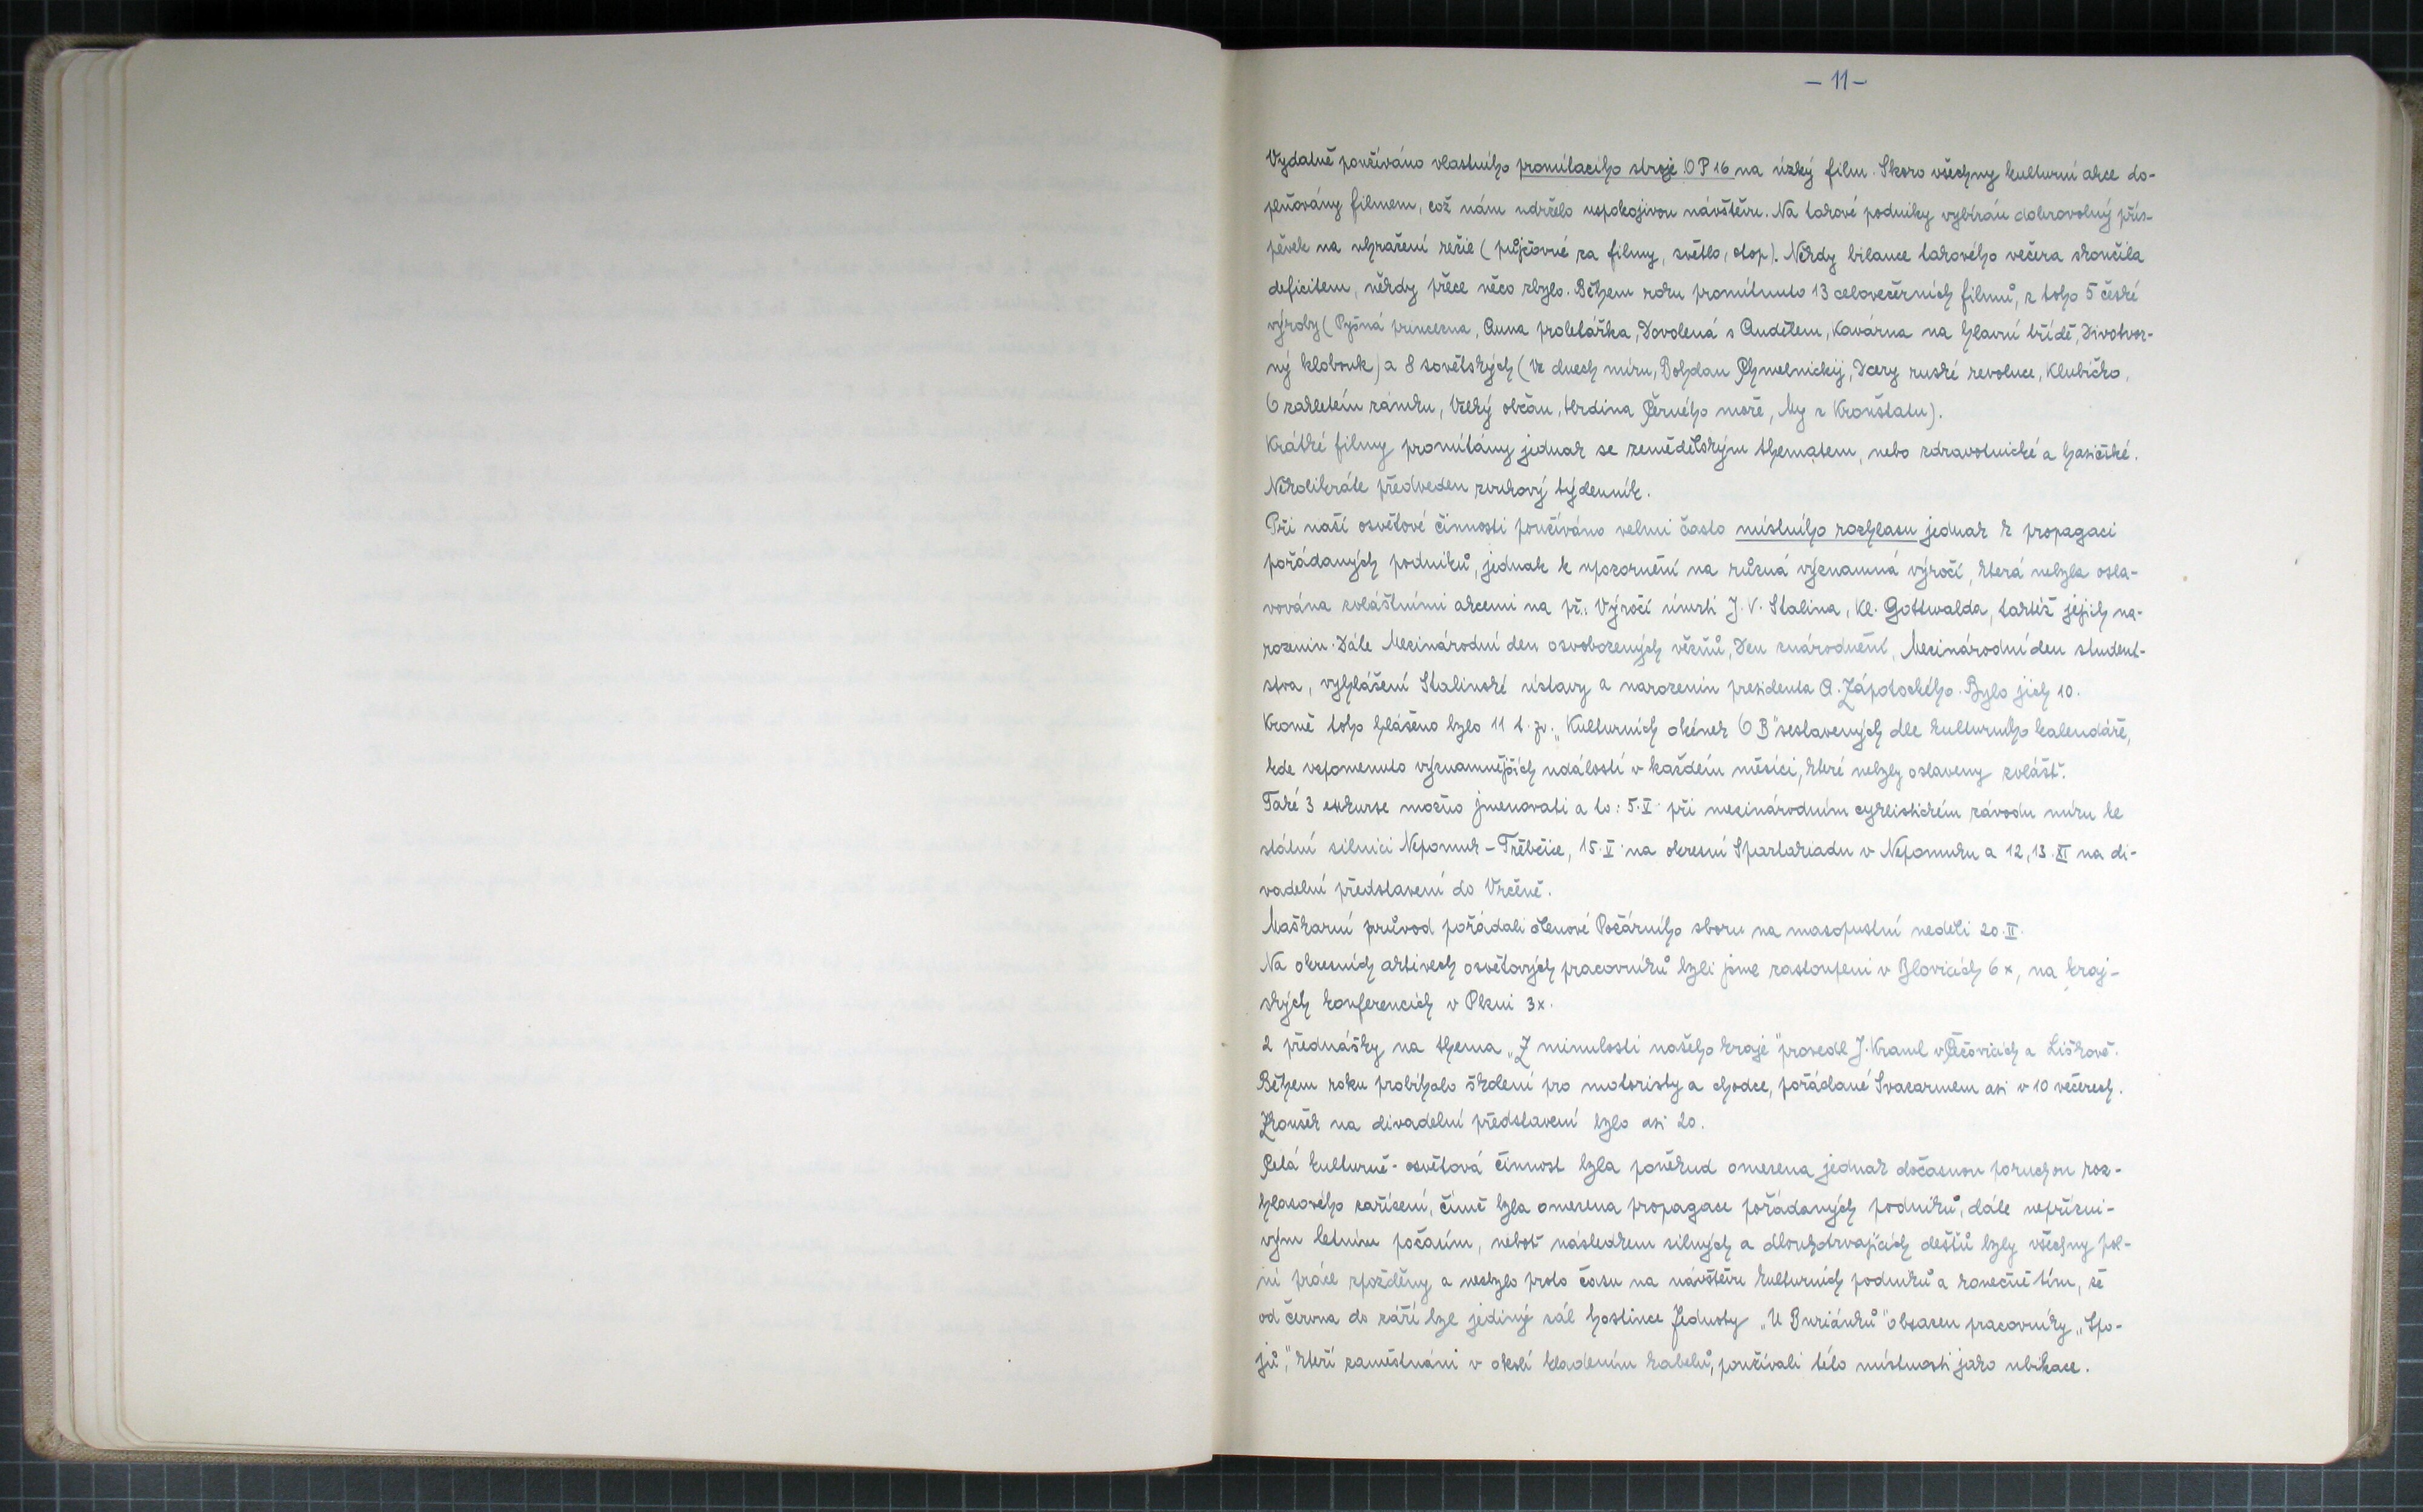 - 11 -
Vydatně používáno vlastního promítacího stroje OP 16 na úzký film. Skoro všechny kulturní akce do-
plňovány filmem, což nám udrželo uspokojivou návštěvu. Na takové podniky vybírán dobrovolný přís-
pěvek na uhražení režie (půjčovné za filmy, světlo, otop). Někdy bilance takového večera skončila
deficitem, někdy přece něco zbylo. Během roku promítnuto 13 celovečerních filmů, z toho 5 české
výroby (Pyšná princezna, Anna proletářka, Dovolená s Andělem, Kavárna na hlavní třídě, Divotvor-
ný klobouk) a 8 sovětských (Ve dnech míru, Bohdan Chmelnickij, Dcery ruské revoluce, Klubíčko,
O zakletém zámku, Velký občan, Hrdina Černého moře, My z Kronštatu).
Krátké filmy promítány jednak se zemědělským thematem, nebo zdravotnické a hasičské.
Několikráte předveden zvukový týdenník.
Při naší osvětové činnosti používáno velmi často místního rozhlasu jednak k propagaci
pořádaných podniků, jednak k upozornění na různá významná výročí, která nebyla osla-
vována zvláštními akcemi na př.: Výročí úmrtí J. V. Stalina, Kl. Gottwalda, taktéž jejich na-
rozenin. Dále Mezinárodní den osvobozených vězňů, Den znárodnění, Mezinárodní den student-
stva, vyhlášení Stalinské ústavy a narozenin presidenta A. Zápotockého. Bylo jich 10.
Kromě toho hlášeno bylo 11 t. zv. „Kulturních okének OB" sestavených dle kulturního kalendáře,
kde vzpomenuto významnějších událostí v každém měsíci, které nebyly oslaveny zvlášť.
Také 3 exkurse možno jmenovati a to: 5. V. při mezinárodním cyklistickém závodu míru ke
státní silnici Nepomuk - Třebčice, 15. V. na okresní Spartakiadu v Nepomuku a 12, 13. XI na di-
vadelní představení do Vrčeně.
Maškarní průvod pořádali členové Požárního sboru na masopustní neděli 20. II.
Na okresních aktivech osvětových pracovníků byli jsme zastoupeni v Blovicích 6 x, na kraj-
ských konferencích v Plzni 3x.
2 přednášky na thema „Z minulosti našeho kraje" provedl J. Kraml v Čečovicích a Liškově.
Během roku probíhalo školení pro motoristy a chodce, pořádané Svazarmem asi v 10 večerech.
Zkoušek na divadelní představení bylo asi 20.
Celá kulturně-osvětová činnost byla poněkud omezena jednak dočasnou poruchou roz-
hlasového zařízení, čímž byla omezena propagace pořádaných podniků, dále nepřízni-
vým letním počasím, neboť následkem silných a dlouhotrvajících dešťů byly všechny pol-
ní práce zpožděny a nezbylo proto času na návštěvu kulturních podniků a konečně tím, že
od června do září byl jediný sál hostince Jednoty „U Buriánků" obsazen pracovníky „Spo-
jů", kteří zaměstnáni v okolí kladením kabelů, používali této místnosti jako ubikace.